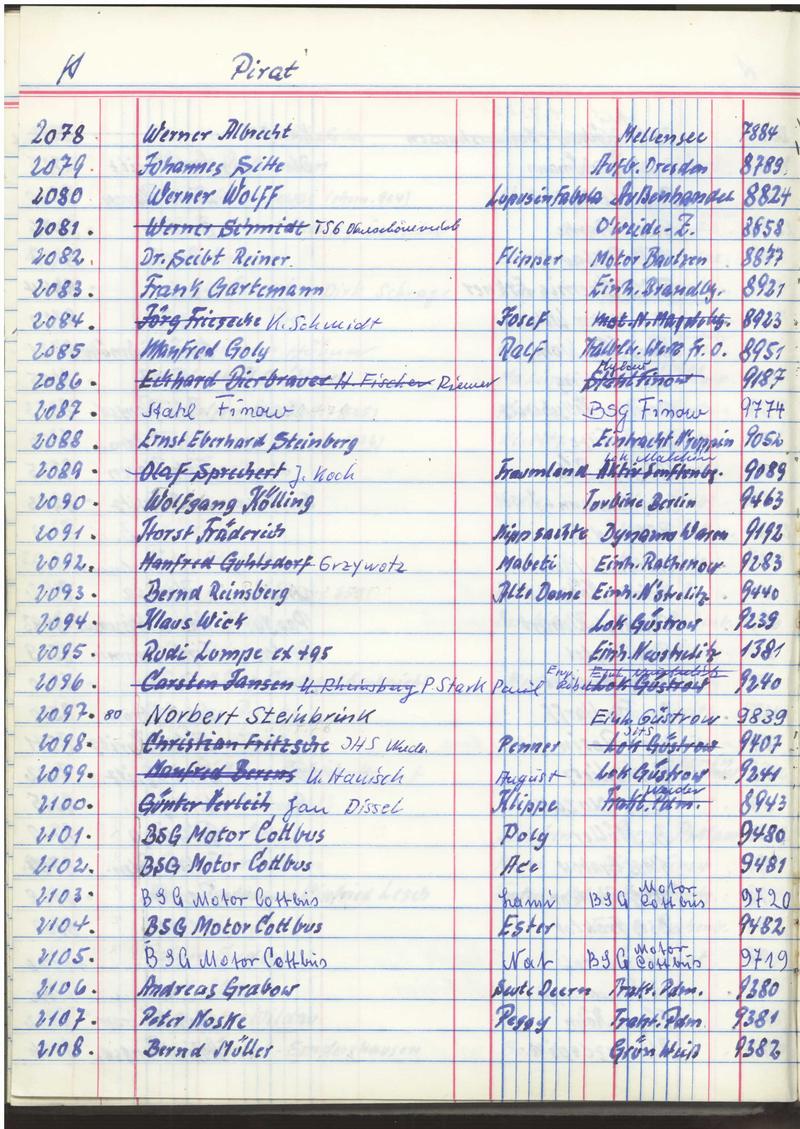 Pirat
2078 Werner Albrecht Mellensee 7884
2079. Johannes Sitte Aufb. Dresden 8789.
2080 Werner Wolff Lupus in Fabola Außenhandel 8824
2081. Werner Schmidt TSG Oberschöneweide O'weide-Z. 8658
2082. Dr. Seibt Reiner. Flipper Motor Bautzen 8877
2083. Frank Gartemann Einh. Brandbg. 8921
2084. Jörg Friesecke K. Schmidt Josef Mot. N. Magdebg. 8923
2085 Manfred Goly Ralf Halbl. Werk Fr. O. 8951
2086. Eckhard Bierbrauer H. Fischer Riemer Stahl Finow 9187
2087. Stahl Finow BSG Finow 9774
2088 Ernst Eberhard Steinberg Eintracht N'ruppin 9056
Lok Malchin
2089. Olaf Sprechert J. Koch Traumland Aktiv Senftenbg. 9089
2090. Wolfgang Kölling Turbine Berlin 9463
2091. Horst Fräderich Nippsachte Dynamo Waren 9192
2092. Manfred Guhlsdorf Grzywotz Mabeti Einh. Rathenow 9283
2093. Bernd Reinsberg Alte Dame Einh. N'strelitz 9440
2094. Klaus Wick Lok Güstrow 9239
2095. Rudi Lumpe Einh. Neustrelitz 1381
2096. Carsten Jansen U. Rheinsberg P. Stark Paul Lok Güstrow 9240
2097. 80 Norbert Steinbrink Einh. Güstrow 9839
2098. Christian Fritzsche IHS Penner IHS Lok Güstrow 9407
2099. Manfred Berens U. Hanisch August Lok Güstrow 9241
2100. Günter Verleih Jan Dissel Klippe Trakt. Pdm. 8943
2101. BSG Motor Cottbus Poly 9480
2102. BSG Motor Cottbus Ace 9481
2103. BSG Motor Cottbus Lami BSG Motor Cottbus 9720
2104. BSG Motor Cottbus Ester 9482
2105. BSG Motor Cottbus Nat BSG Motor Cottbus 9719
2106. Andreas Grabow Seute Deern Trakt. Pdm. 9380
2107. Peter Noske Peggy Trakt. Pdm. 9381
2108. Bernd Müller Grün Weiß 9382